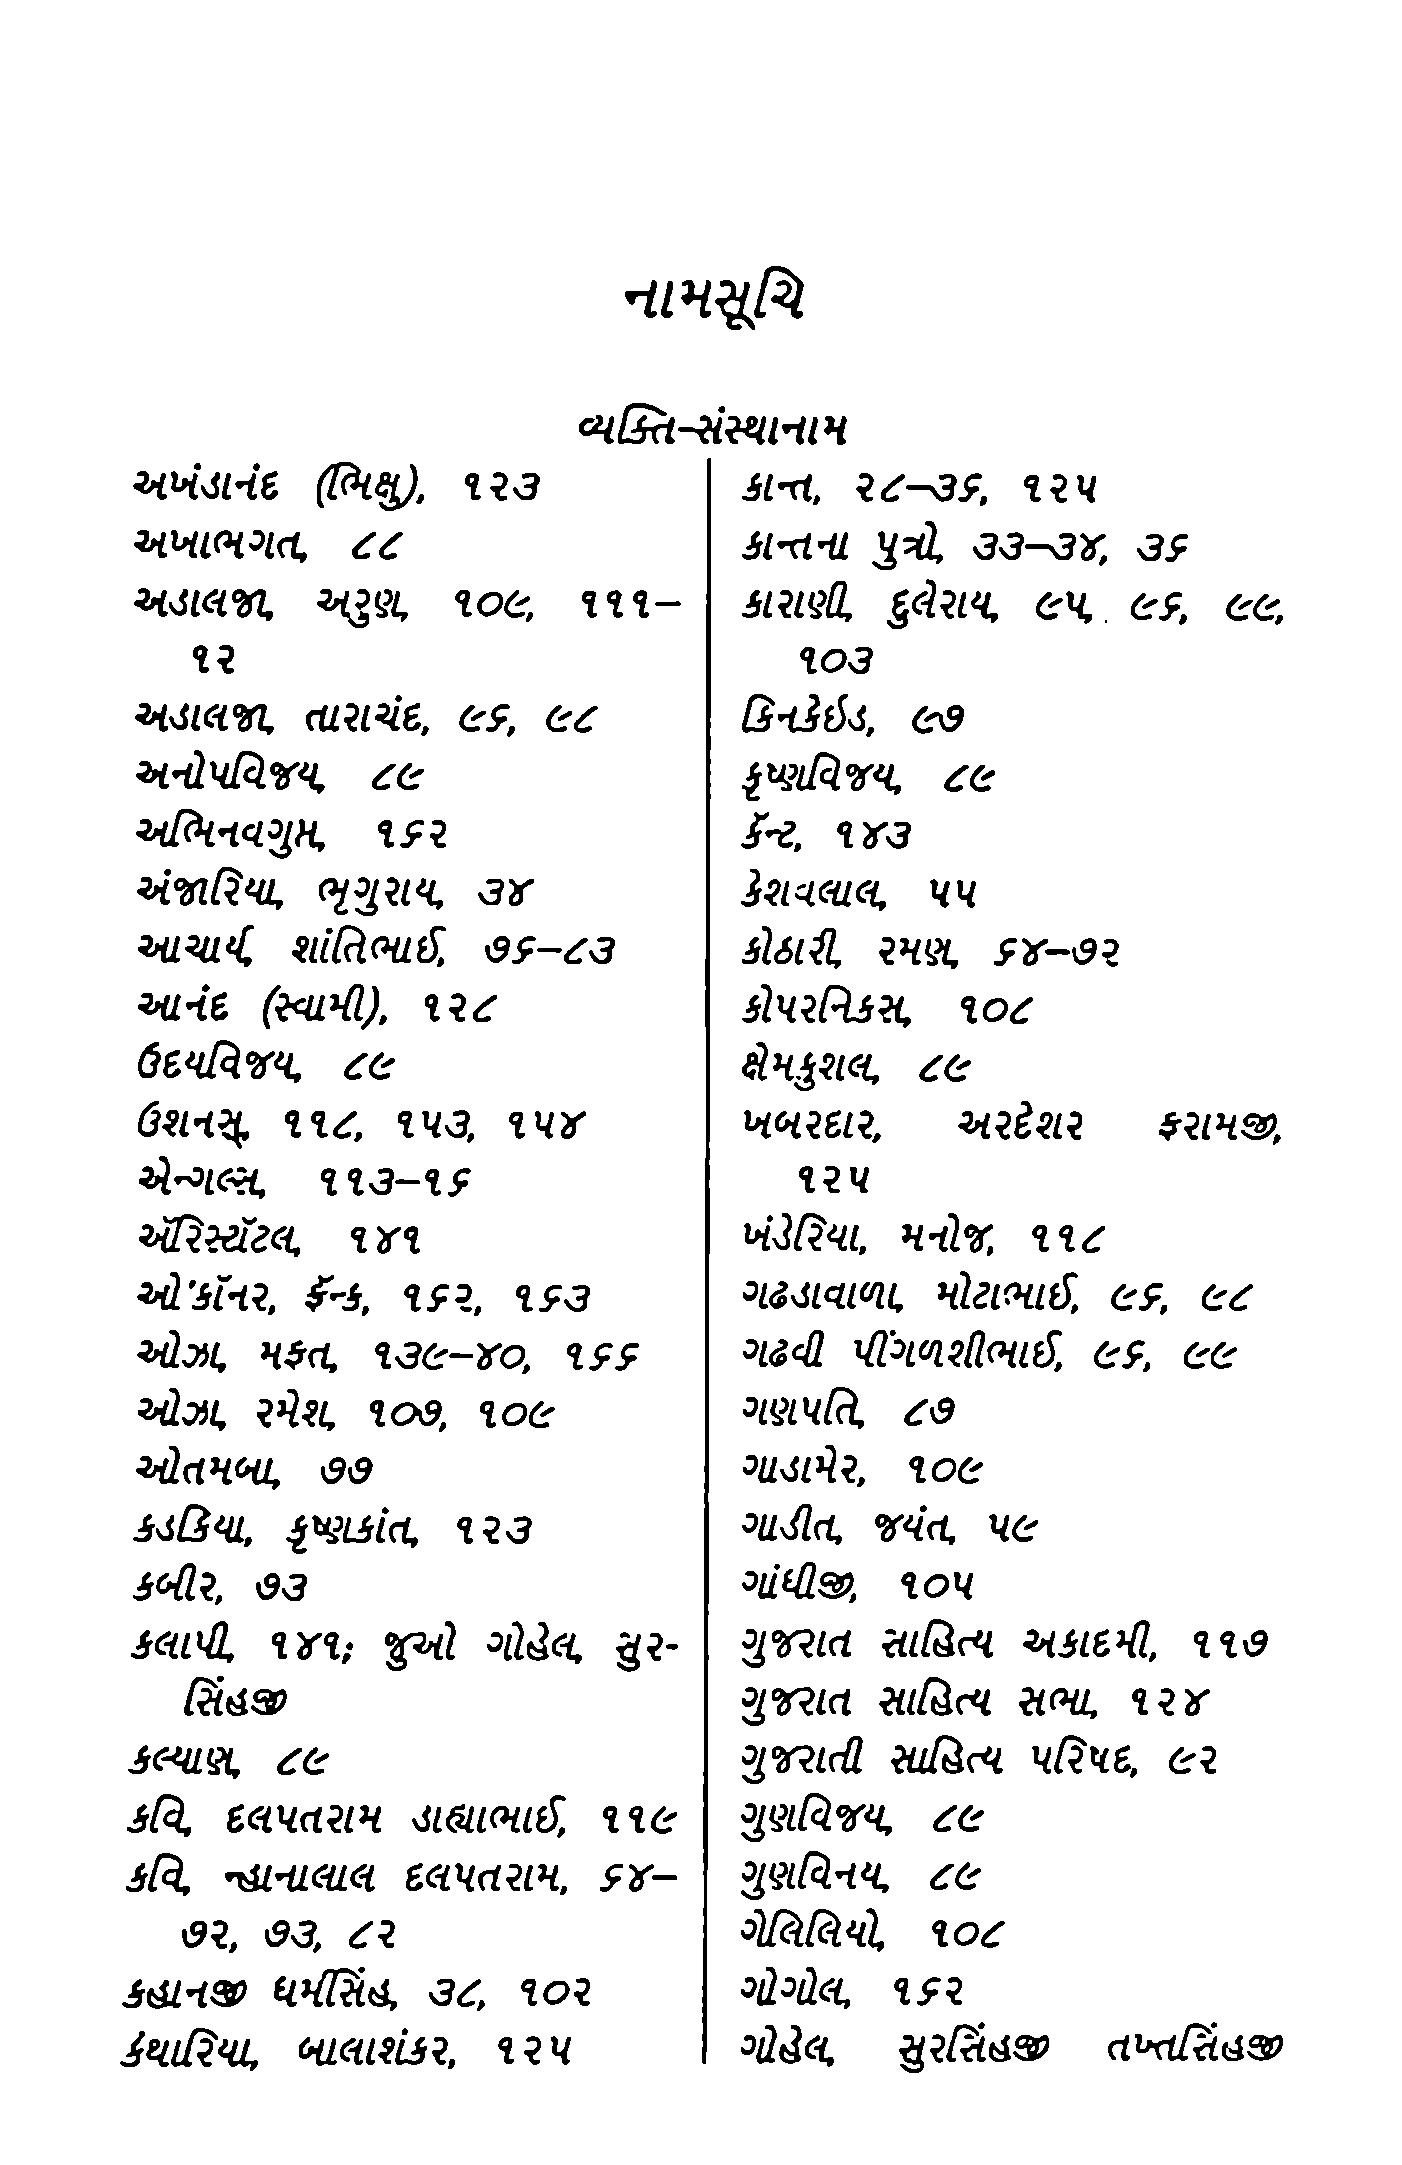 નામસૂચિ
વ્યક્તિ-સંસ્થાનામ
અખંડાનંદ (ભિક્ષુ), ૧૨૩
અખાભગત, ૮૮
અડાલજા, અરુણ, ૧૦૯, ૧૧૧–
૧૨
અડાલજા, તારાચંદ, ૯૬, ૯૮
અનોપવિજય, ૮૯
અભિનવગુપ્ત, ૧૬૨
અંજારિયા, ભૃગુરાય, ૩૪
આચાર્ય, શાંતિભાઈ, ૭૬–૮૩
આનંદ (સ્વામી), ૧૨૮
ઉદયવિજય, ૮૯
ઉશનસ્, ૧૧૮, ૧૫૩, ૧૫૪
એન્ગલ્સ, ૧૧૩–૧૬
ઍરિસ્ટૉટલ, ૧૪૧
ઓ'કૉનર, ફ્રૅન્ક, ૧૬૨, ૧૬૩
ઓઝા, મફત, ૧૩૯–૪૦, ૧૬૬
ઓઝા, રમેશ, ૧૦૭, ૧૦૯
ઓતમબા, ૭૭
કડકિયા, કૃષ્ણકાંત, ૧૨૩
કબીર, ૭૩
કલાપી, ૧૪૧; જુઓ ગોહેલ, સુર-
સિંહજી
કલ્યાણ, ૮૯
કવિ, દલપતરામ ડાહ્યાભાઈ, ૧૧૯
કવિ, ન્હાનાલાલ દલપતરામ, ૬૪–
૭૨, ૭૩, ૮૨
કહાનજી ધર્મસિંહ, ૩૮, ૧૦૨
કંથારિયા, બાલાશંકર, ૧૨૫
કાન્ત, ૨૮–૩૬, ૧૨૫
કાન્તના પુત્રો, ૩૩–૩૪, ૩૬
કારાણી, દુલેરાય, ૯૫, ૯૬, ૯૯,
૧૦૩
કિનકેઇડ, ૯૭
કૃષ્ણવિજય, ૮૯
કૅન્ટ, ૧૪૩
કેશવલાલ, ૫૫
કોઠારી, રમણ, ૬૪–૭૨
કોપરનિકસ, ૧૦૮
ક્ષેમકુશલ, ૮૯
ખબરદાર, અરદેશર ફરામજી,
૧૨૫
ખંડેરિયા, મનોજ, ૧૧૮
ગઢડાવાળા, મોટાભાઈ, ૯૬, ૯૮
ગઢવી પીંગળશીભાઈ, ૯૬, ૯૯
ગણપતિ, ૮૭
ગાડામેર, ૧૦૯
ગાડીત, જયંત, ૫૯
ગાંધીજી, ૧૦૫
ગુજરાત સાહિત્ય અકાદમી, ૧૧૭
ગુજરાત સાહિત્ય સભા, ૧૨૪
ગુજરાતી સાહિત્ય પરિષદ, ૯૨
ગુણવિજય, ૮૯
ગુણવિનય, ૮૯
ગેલિલિયો, ૧૦૮
ગોગોલ, ૧૬૨
ગોહેલ, સુરસિંહજી તખ્તસિંહજી